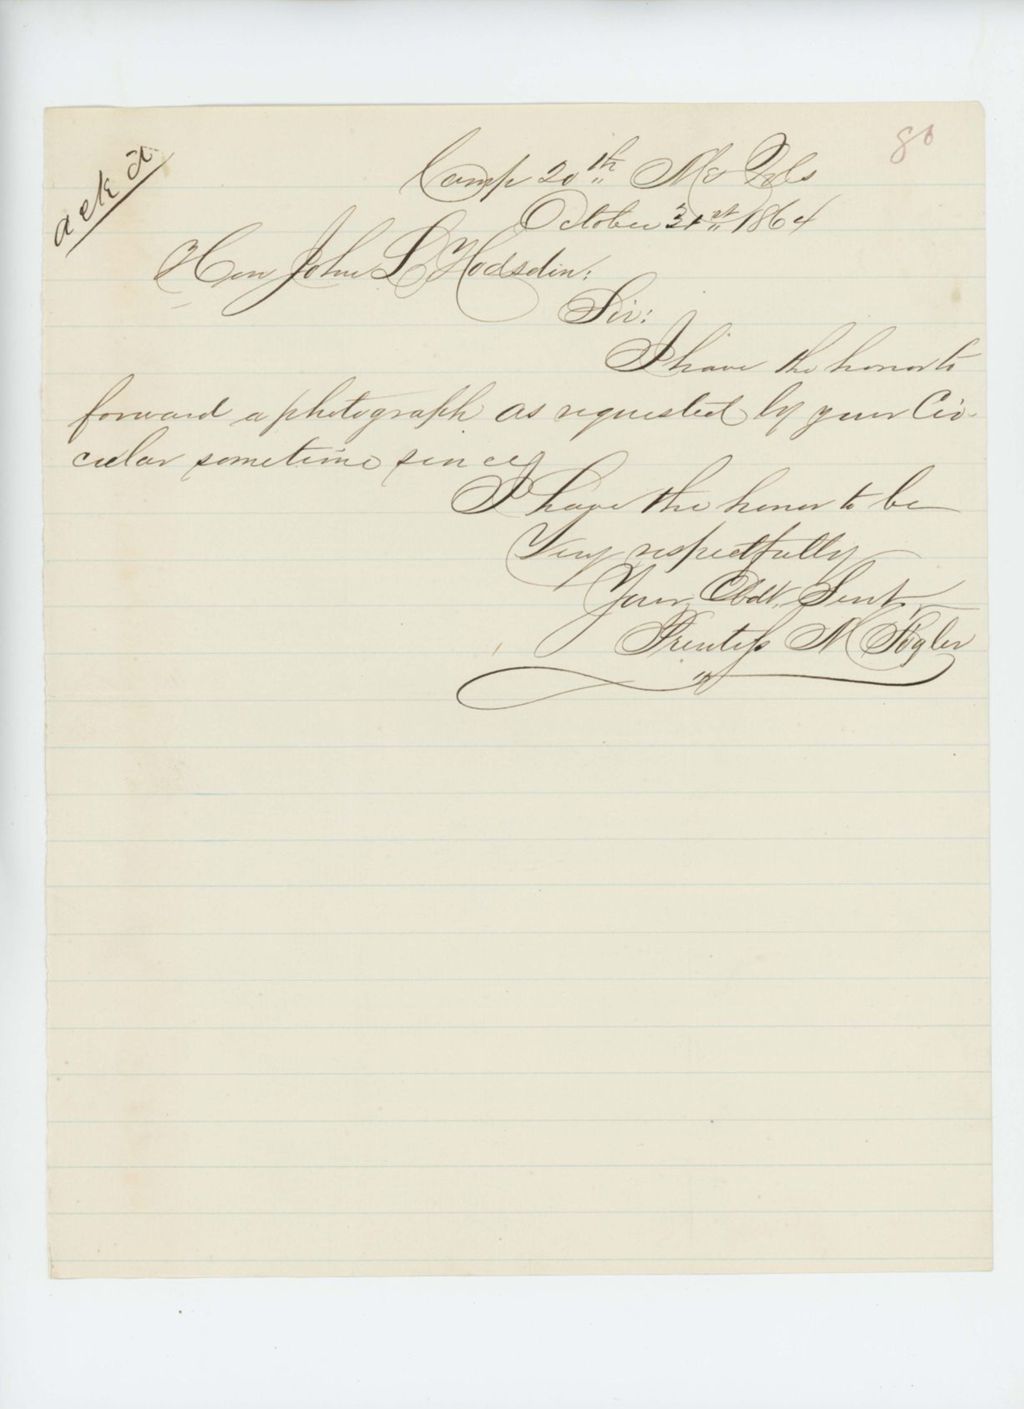 80
ack d
Camp 20th Me Vols
October 31st 1864
Hon John L Hodsdin:
Sir:
I have the honor to
forward a photograph as requested by your Cir-
cular sometime since
I have the honor to be
Very respectfully
Your Obdt. Servt,
Prentiss M Fogler